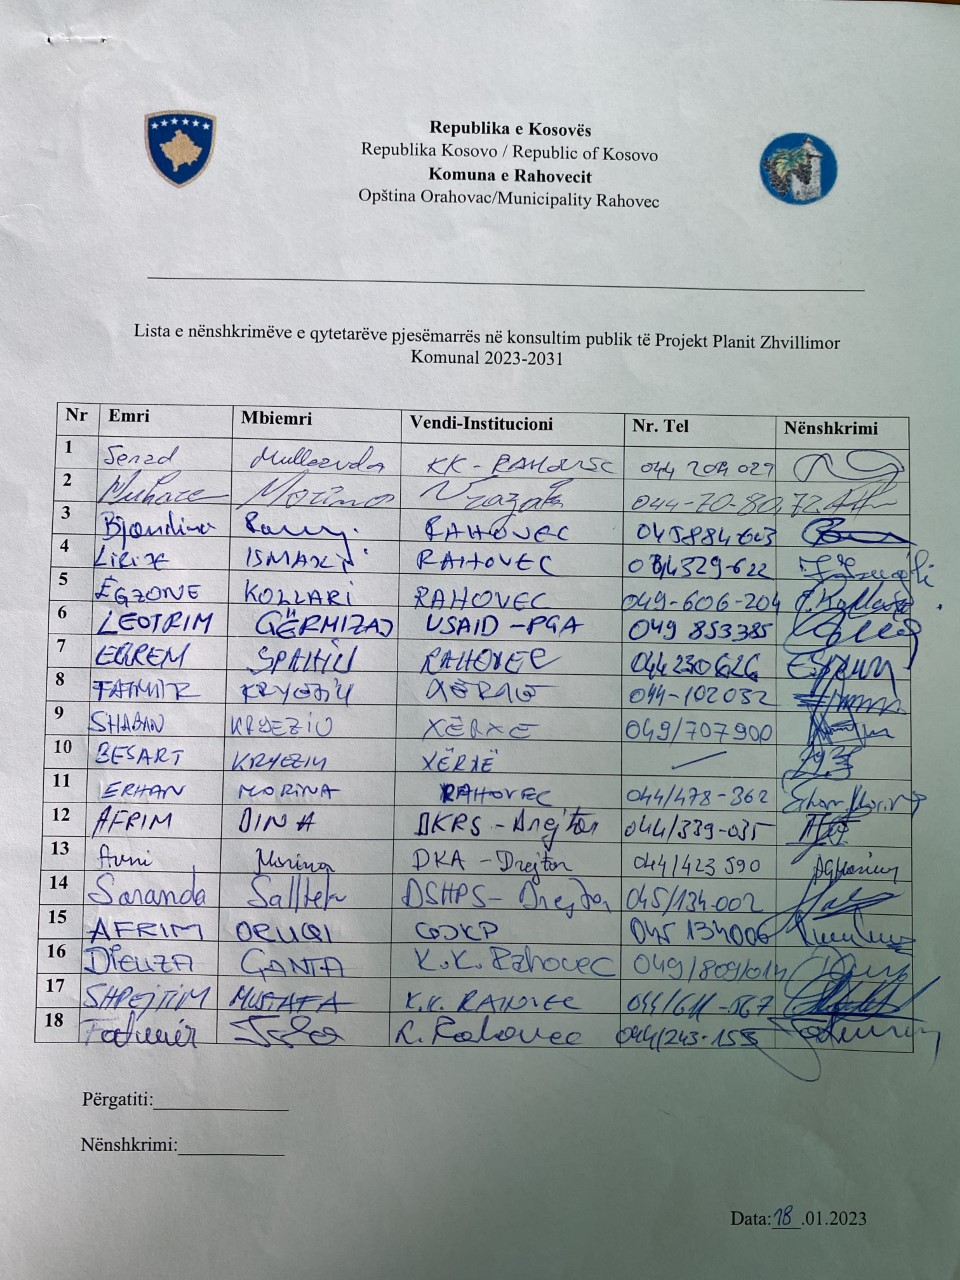 Republika e Kosovës
Republika Kosovo / Republic of Kosovo
Komuna e Rahovecit
Opština Orahovac/Municipality Rahovec
Lista e nënshkrimëve e qytetarëve pjesëmarrës në konsultim publik të Projekt Planit Zhvillimor
Komunal 2023-2031
Nr Emri Mbiemri Vendi-Institucioni Nr. Tel Nënshkrimi
1 Senad KK - RAHOVEC 044 209 029
2 044-70-80
3 RAHOVEC 045884643
4 ISMAILI RAHOVEC
5 EGZONE KOLLARI RAHOVEC 049-606-204
6 LEOTRIM GËRMIZAJ USAID - PGA 049 853385
7 EGREM SPAHIU RAHOVEC 044230626
8 FATMIR KRYEZIU 044-102032
9 SHABAN KRYEZIU XËRXE 049/707900
10 BESART KRYEZIU XËRXË
11 ERHAN MORINA RAHOVEC 044/478-362
12 AFRIM DINA DKRS - Drejtor 044/339-035
13 Avni Morina DKA - Drejtor 044/423 590
14 Saranda DSHPS - Drejtor 045/134-002
15 AFRIM 045 134006
16 K.K. Rahovec
17 SHPEJTIM MUSTAFA K.K. RAHOVEC 044/611-567
18 Fatmir K. Rahovec 044/243-155
Përgatiti:
Nënshkrimi:
Data:18.01.2023